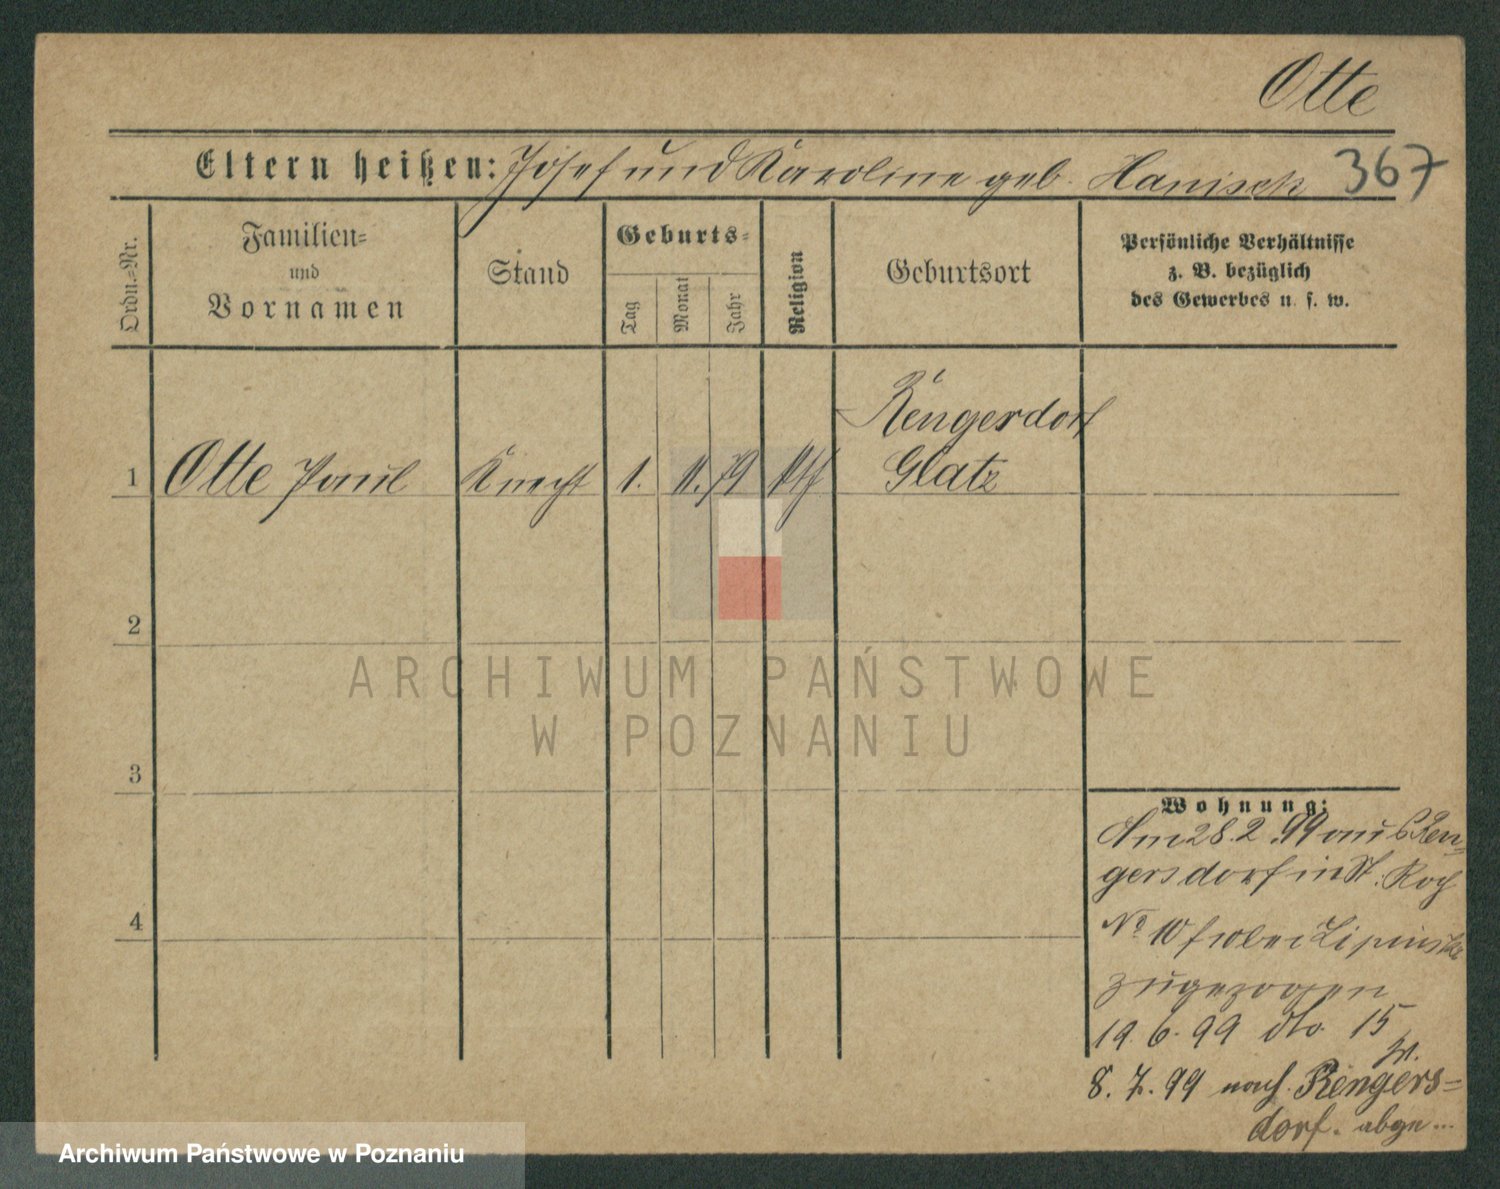 Otte
Eltern heißen: Josef und Karoline geb. Hanisch 367
Ordn.=Nr.
Familien=
und
Vornamen
Stand
Geburts=
Tag
Monat
Jahr
Religion
Geburtsort
Persönliche Verhältnisse
z. B. bezüglich
des Gewerbes u. s. w.
Rengersdorf
1 Otte Paul Knecht 1. 11. 79 kth Glatz
2
3
4
Wohnung:
Am 28.2.99 aus Ren=
gersdorf in St. Roch
No 10 bei Lipinski
zugezogen
19. 6. 99 dto. 15
8. 7. 99 nach Rengers=
dorf. abge...
ARCHIWUM PAŃSTWOWE
W POZNANIU
Archiwum Państwowe w Poznaniu